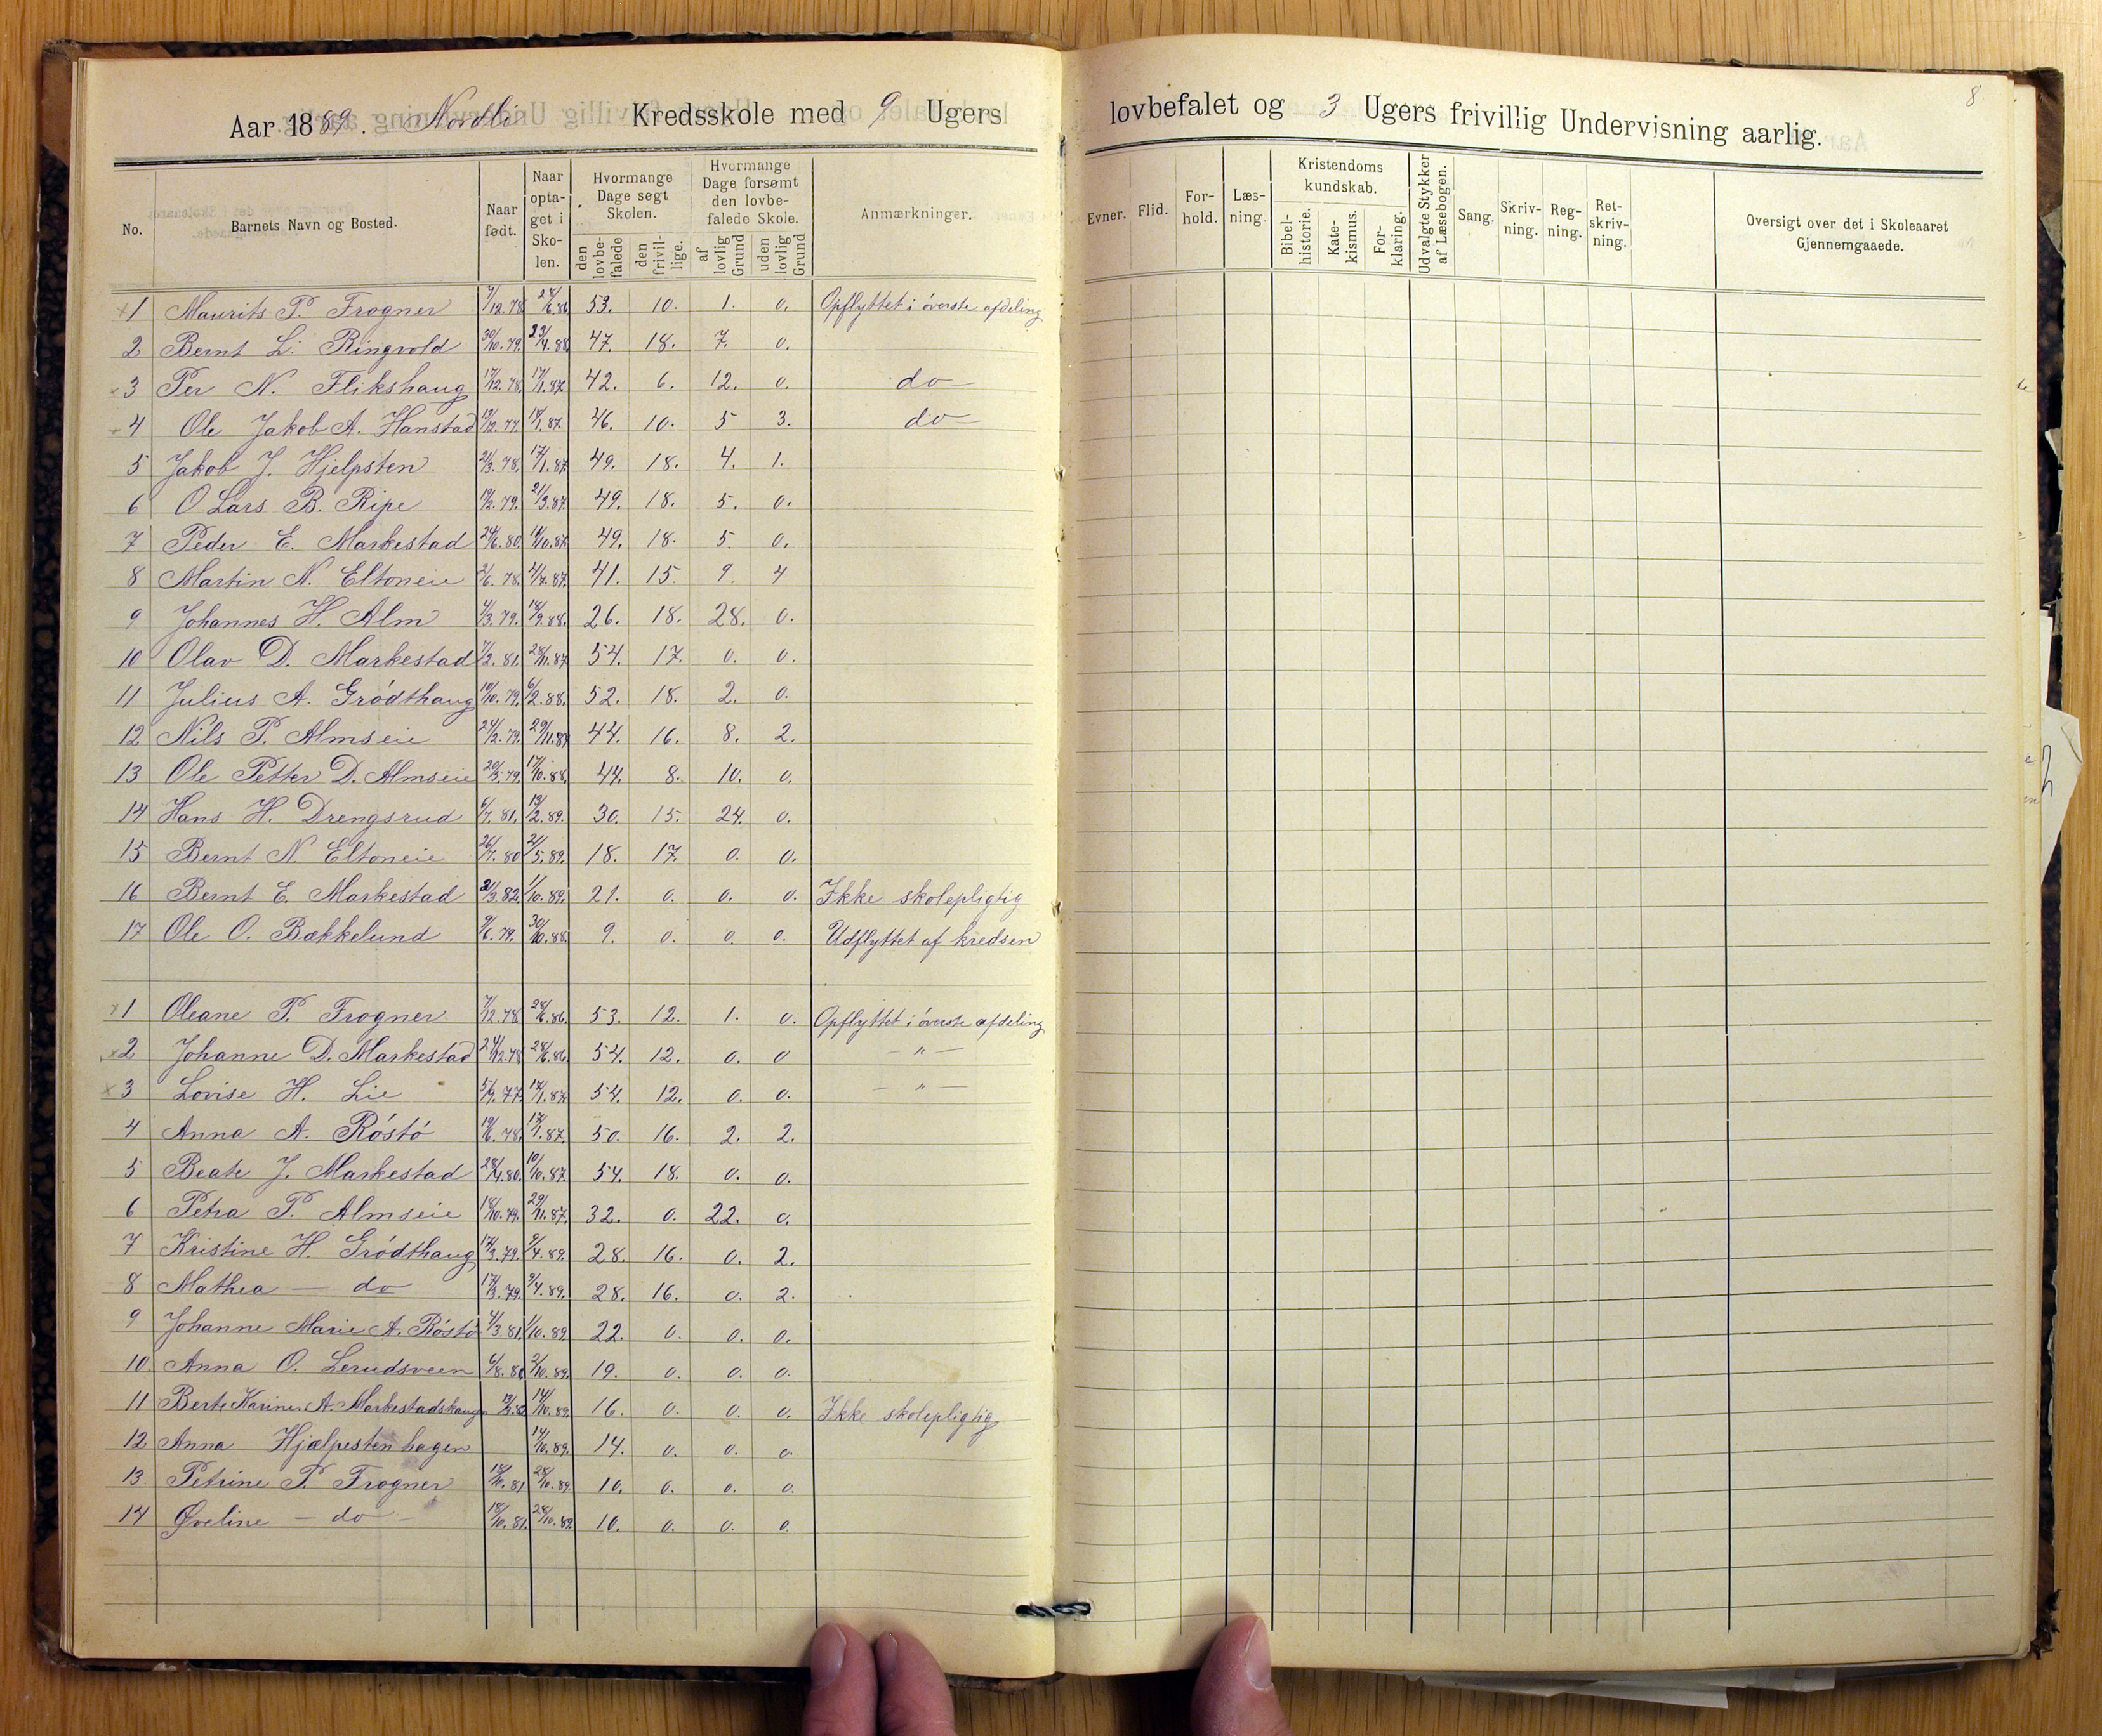 Aar 1889. Nordli Kredsskole med 9 Ugers
No. Barnets Navn og Bosted. Naar født. Naar optaget i Skolen. Hvormange Dage søgt Skolen. den lovbefalede den frivillige. Hvormange Dage forsømt den lovbefalede Skole. af lovlig Grund uden lovlig Grund Anmærkninger.
1 Maurits P. Frogner 7/12.78 28/6.86 53. 10. 1. 0. Opflyttet i øverste afdeling
2 Bernt L. Ringvold 30/10.79. 23/4.88 47. 18. 7. 0.
3 Per N. Flikshaug 17/12.78. 17/1.87. 42. 6. 12. 0. do
4 Ole Jakob A. Hanstad 19/12.77. 18/1.87. 46. 10. 5 3. do
5 Jakob J. Hjelpsten 21/3.78. 17/1.87. 49. 18. 4. 1.
6 O Lars B. Ripe 19/2.79. 21/3.87. 49. 18. 5. 0.
7 Peder E. Markestad 24/6.80. 10.87. 49. 18. 5. 0.
8 Martin N. Eltoneie 2/6.78. 4/7.87. 41. 15. 9. 4
9 Johannes H. Alm 4/3.79. 18/9.88. 26. 18. 28. 0.
10 Olav D. Markestad 7/2.81. 28/11.87 54. 17. 0. 0.
11 Julius A. Grødthaug 10/10.79. 6/2.88. 52. 18. 2. 0.
12 Nils P. Almseie 24/2.79. 29/11.87 44. 16. 8. 2.
13 Ole Petter D. Almseie 20/3.79. 17/10.88. 44. 8. 10. 0.
14 Hans H. Drengsrud 6/7.81. 19/2.89. 30. 15. 24. 0.
15 Bernt N. Eltoneie 26/7.80 21/5.89. 18. 17. 0. 0.
16 Bernt E. Markestad 21/3.82. 1/10.89. 21. 0. 0. 0. Ikke skolepligtig
17 Ole O. Bækkelund 9/6.79. 30/10.88. 9. 0. 0. 0. Udflyttet af kredsen
1 Oleane P. Frogner 7/12.78 28/6.86. 53. 12. 1. 0. Opflyttet i øverste afdeling
2 Johanne D. Markestad 24/12.78 28/6.86 54. 12. 0. 0 — " —
3 Lovise H. Lie 5/9.77. 17/1.87. 54. 12. 0. 0. — " —
4 Anna A. Røstø 19/6.78. 17/1.87. 50. 16. 2. 2.
5 Beate J. Markestad 28/4.80. 10/10.87. 54. 18. 0. 0.
6 Petra P. Almseie 18/10.79. 29/11.87. 32. 0. 22. 0.
7 Kristine H. Grødthaug 17/3.79. 9/4.89. 28. 16. 0. 2.
8 Mathea — do 17/3.79. 9/4.89. 28. 16. 0. 2.
9 Johanne Marie A. Røstø 4/3.81. 1/10.89. 22. 0. 0. 0.
10. Anna O. Lerudsveen 6/8.80 2/10.89. 19. 0. 0. 0.
11 Berte Karine A. Markestadshaug 14/10.89. 16. 0. 0. 0. Ikke skolepligtig
12 Anna Hjælpestenhagen 14/10.89. 14. 0. 0. 0
13. Petrine P. Frogner 18/10.81 28/10.89. 10. 0. 0. 0.
14 Øveline — do — 18/10.81. 28/10.89. 10. 0. 0. 0.
8
lovbefalet og 3 Ugers frivillig Undervisning aarlig.
Evner. Flid. Forhold. Læsning. Kristendoms kundskab. Bibelhistorie. Katekismus. Forklaring. Udvalgte Stykker af Læsebogen. Sang. Skrivning. Regning. Retskrivning. Oversigt over det i Skoleaaret Gjennemgaaede.